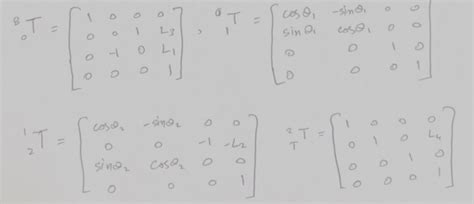 ⁸₀T = [ 1 0 0 0
0 0 1 L₃
0 -1 0 L₁
0 0 0 1 ] , ⁰₁T = [ cosθ₁ -sinθ₁ 0 0
sinθ₁ cosθ₁ 0 0
0 0 1 0
0 0 0 1 ]
¹₂T = [ cosθ₂ -sinθ₂ 0 0
0 0 -1 -L₂
sinθ₂ cosθ₂ 0 0
0 0 0 1 ] ²ₜT = [ 1 0 0 0
0 1 0 L₄
0 0 1 0
0 0 0 1 ]